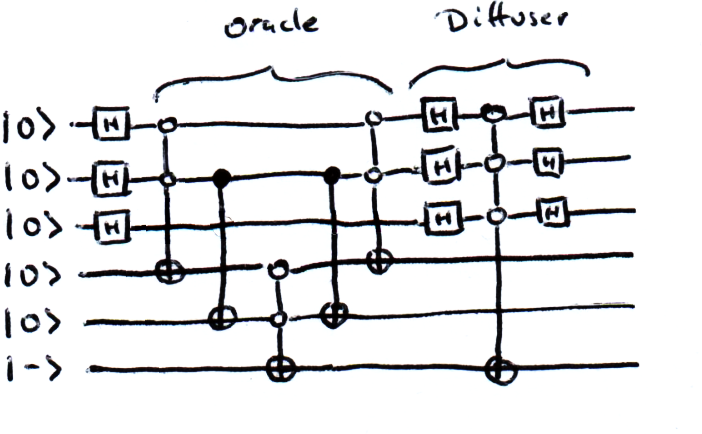 Oracle Diffuser
|0> H H H
|0> H H H
|0> H H H
|0>
|0>
|->